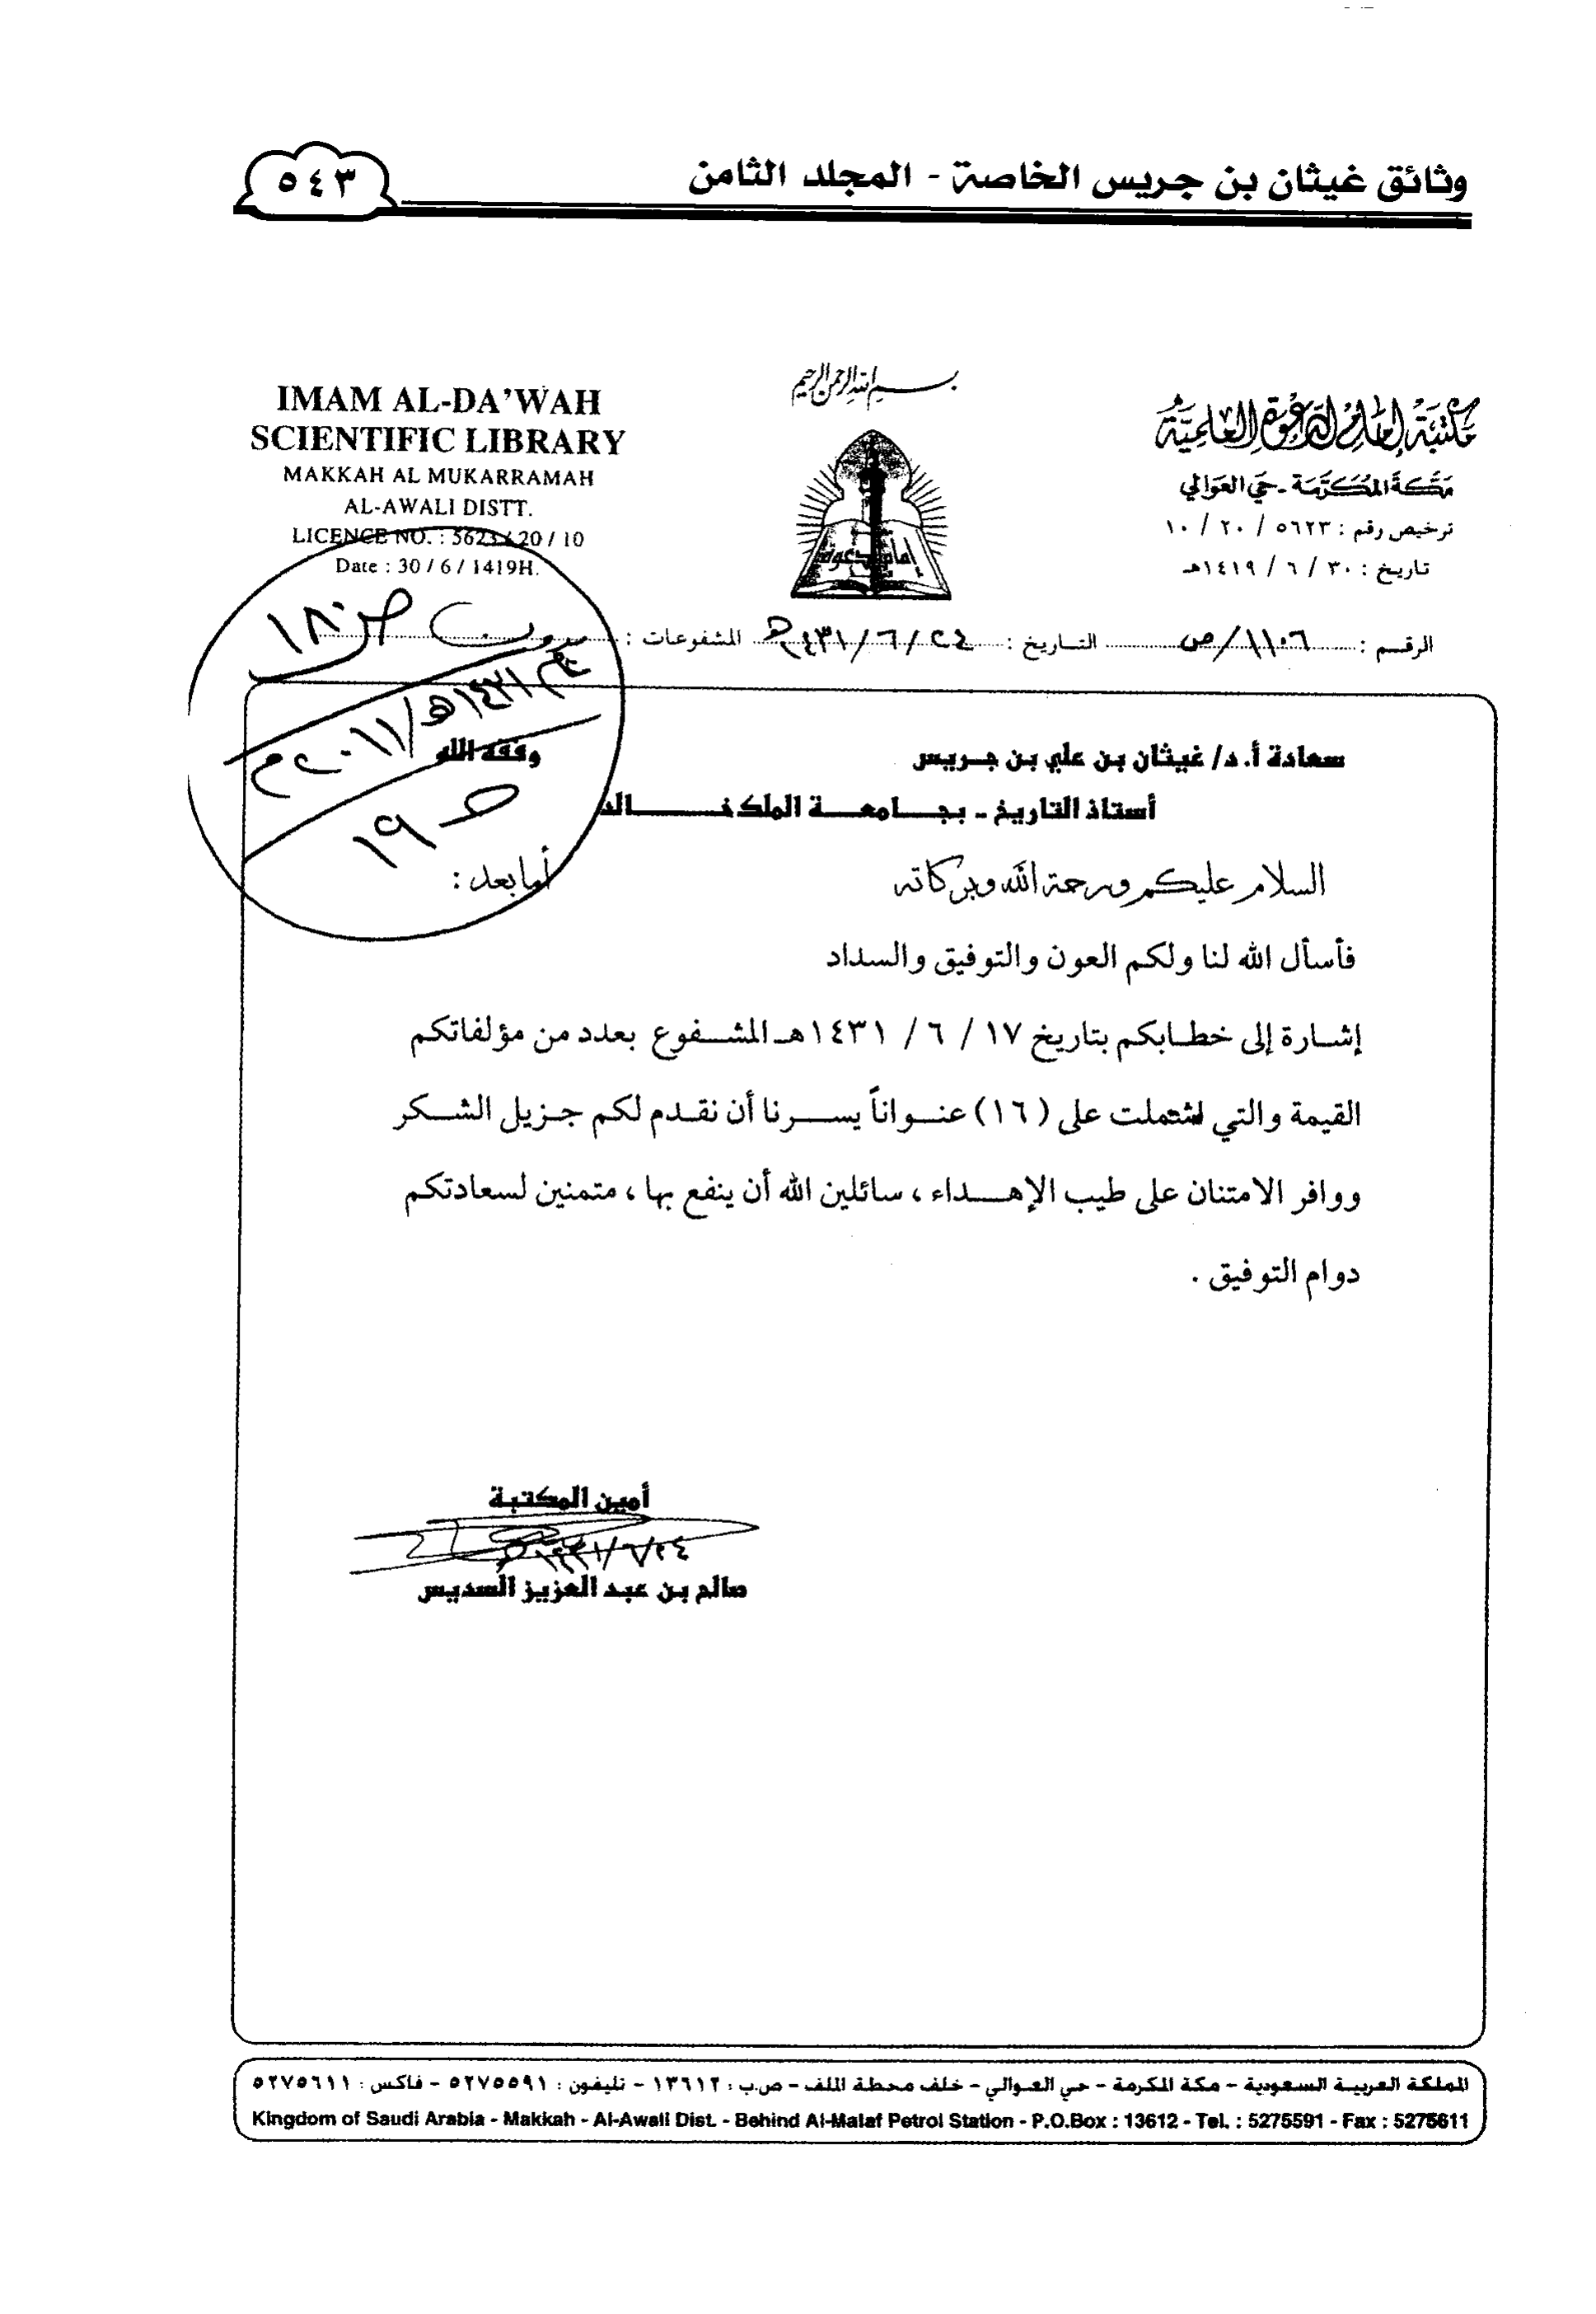 وثائق غيثان بن جريس الخاصة - المجلد الثامن
٥٤٣
بسم الله الرحمن الرحيم
مكتبة إمام الدعوة العلمية
مكة المكرمة - حي العوالي
ترخيص رقم : ٥٦٢٣ / ٢٠ / ١٠
تاريخ : ٣٠ / ٦ / ١٤١٩هـ
IMAM AL-DA'WAH
SCIENTIFIC LIBRARY
MAKKAH AL MUKARRAMAH
AL-AWALI DISTT.
LICENCE NO. : 5623 / 20 / 10
Date : 30 / 6 / 1419H.
إمام الدعوة
الرقم : ١١٠٦/ص التاريخ : ٢٤ / ٦ / ١٤٣١هـ المشفوعات : بدون
١٤٣١هـ/٢٠١١م
سعادة أ. د/ غيثان بن علي بن جريس وفقه الله
أستاذ التاريخ - بجامعة الملك خالد
السلام عليكم ورحمة الله وبركاته أما بعد :
فأسأل الله لنا ولكم العون والتوفيق والسداد
إشارة إلى خطابكم بتاريخ ١٧ / ٦ / ١٤٣١هـ المشفوع بعدد من مؤلفاتكم
القيمة والتي اشتملت على (١٦) عنواناً يسرنا أن نقدم لكم جزيل الشكر
ووافر الامتنان على طيب الإهداء ، سائلين الله أن ينفع بها ، متمنين لسعادتكم
دوام التوفيق .
أمين المكتبة
١٤٣١/٦/٢٤هـ
صالح بن عبد العزيز السديس
المملكة العربية السعودية - مكة المكرمة - حي العوالي - خلف محطة الملف - ص.ب : ١٣٦١٢ - تليفون : ٥٢٧٥٥٩١ - فاكس : ٥٢٧٥٦١١
Kingdom of Saudi Arabia - Makkah - Al-Awali Dist. - Behind Al-Malaf Petrol Station - P.O.Box : 13612 - Tel. : 5275591 - Fax : 5275611